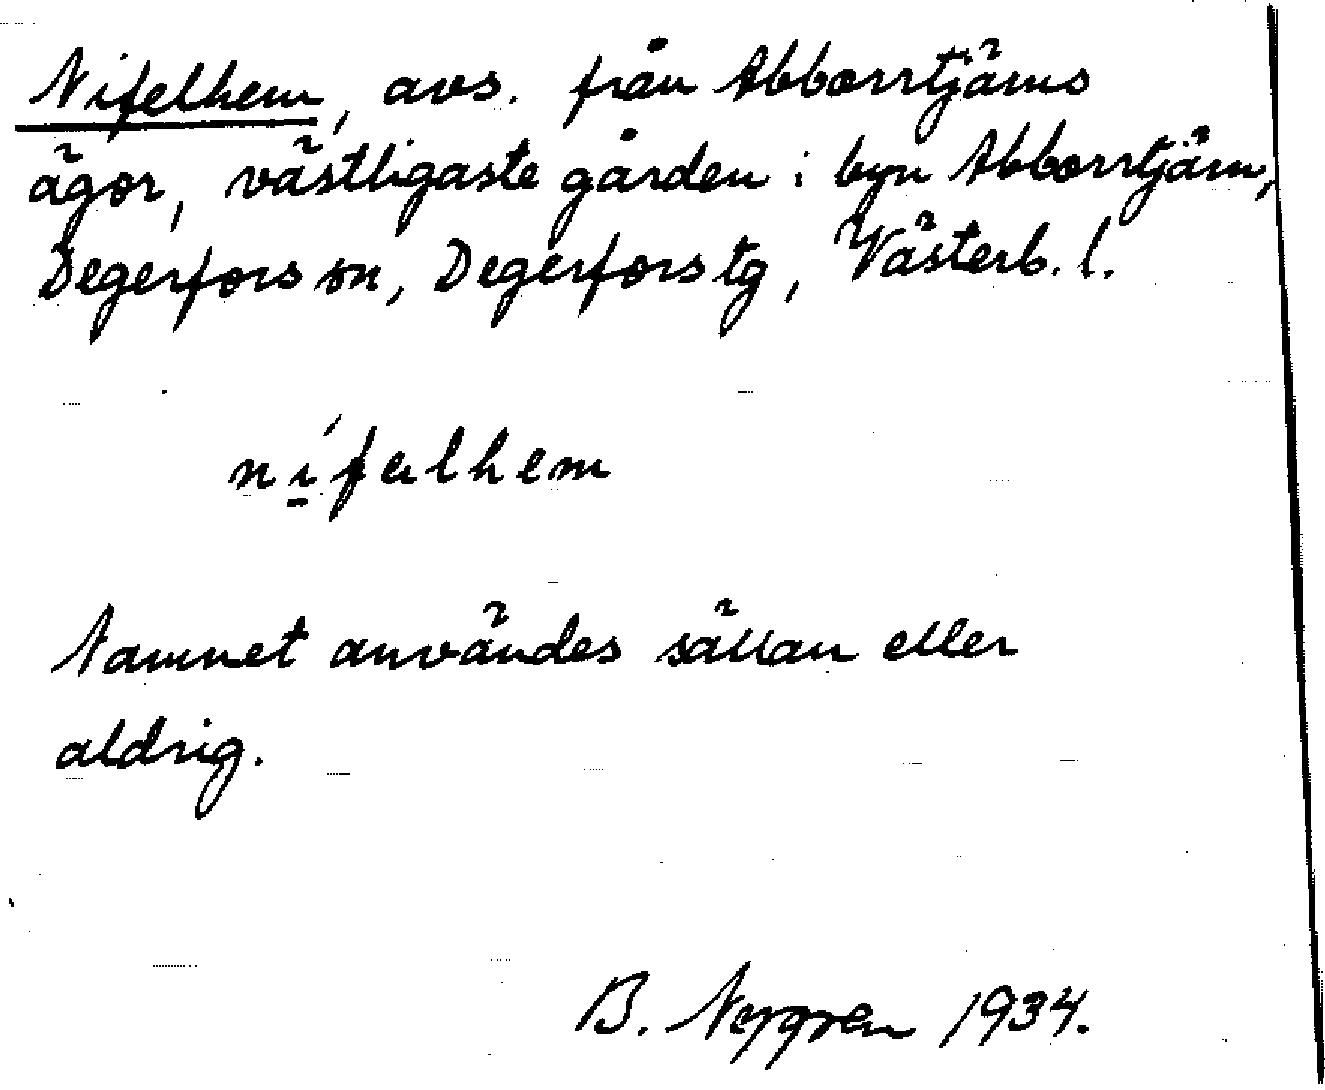 Nifelhem, avs. från Abborrtjärns
ägor, västligaste gården i byn Abborrtjärn,
Degerfors sn, Degerfors tg, Västerb. l.
nífəlhem
Namnet användes sällan eller
aldrig.
B. Nygren 1934.